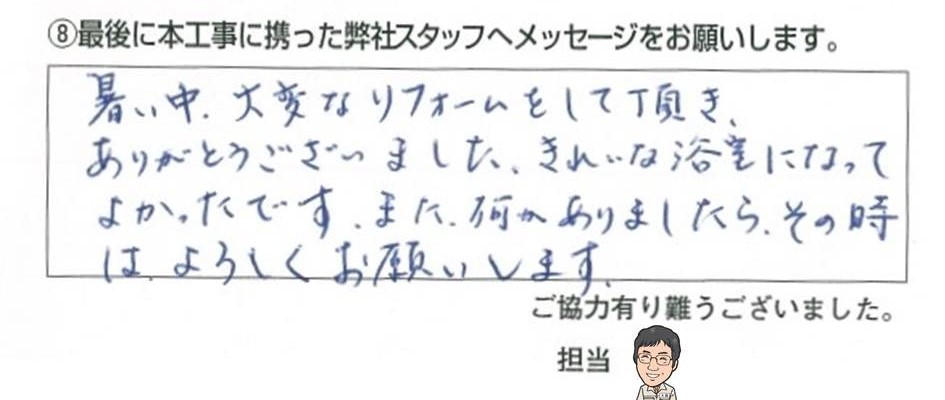 ⑧最後に本工事に携った弊社スタッフへメッセージをお願いします。
暑い中、大変なリフォームをして頂き、
ありがとうございました、きれいな浴室になって
よかったです、また、何かありましたら、その時
は、よろしくお願いします。
ご協力有り難うございました。
担当